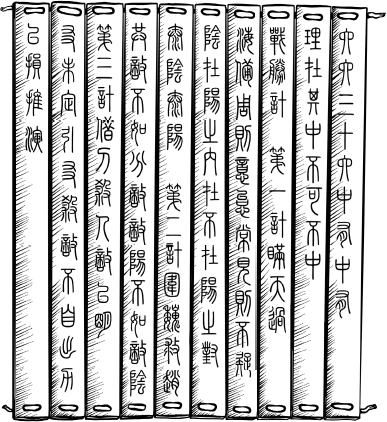 六六三十六中有中有
理在其中不可不中
戰勝計 第一計瞞天過
海備周則意怠常見則不疑
陰在陽之內不在陽之對
泰陰泰陽 第二計圍魏救趙
共敵不如分敵敵陽不如敵陰
第三計借刀殺人敵已明
友未定引友殺敵不自出力
以損推演